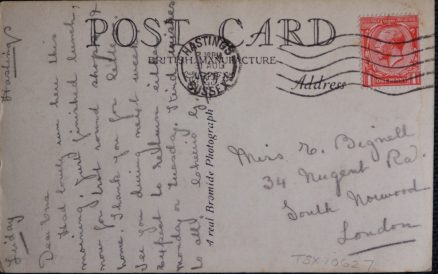 POST CARD
BRITISH MANUFACTURE
HASTINGS
SUSSEX
Address
A real Bromide Photograph
Hastings
Friday
Dear One
Had lovely run here this
morning. Just finished lunch,
now for
home. Thank you for letter.
See you during next week.
Expect to return either
Monday or Tuesday. Kind wishes
to all.
Miss E. Bignell
34, Nugent Rd.
South Norwood
London
TSX-10627